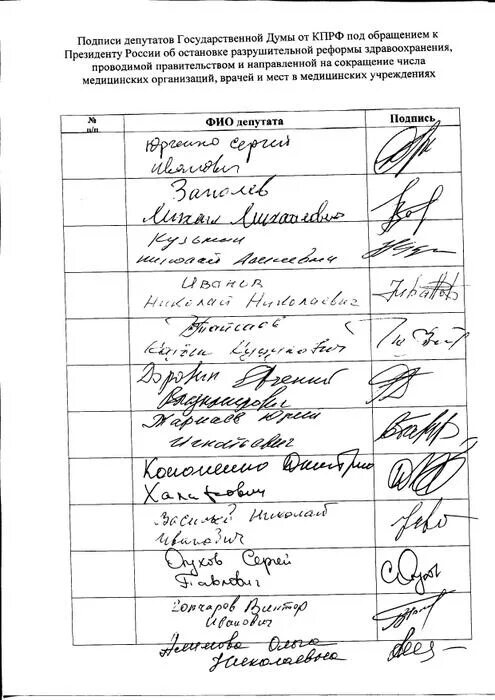 Подписи депутатов Государственной Думы от КПРФ под обращением к
Президенту России об остановке разрушительной реформы здравоохранения,
проводимой правительством и направленной на сокращение числа
медицинских организаций, врачей и мест в медицинских учреждениях
№
п/п
ФИО депутата
Подпись
Юрченко Сергей
Иванович
Заполев
Михаил Михайлович
Кузьмин
Николай
Иванов
Николай Николаевич
Тайсаев
Казбек Куцукович
Доровин Евгений
Владимирович
Юрий
Игнатьевич
Кононенко Дмитрий
Василий Николай
Иванович
Обухов Сергей
Павлович
Гончаров Виктор
Иванович
Алимова Ольга
Николаевна